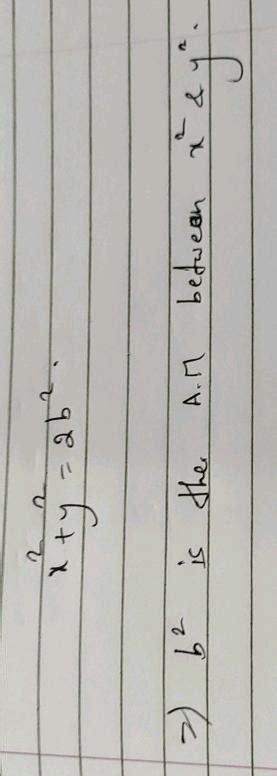 x² + y² = 2b².
=) b² is the A.M between x² & y².